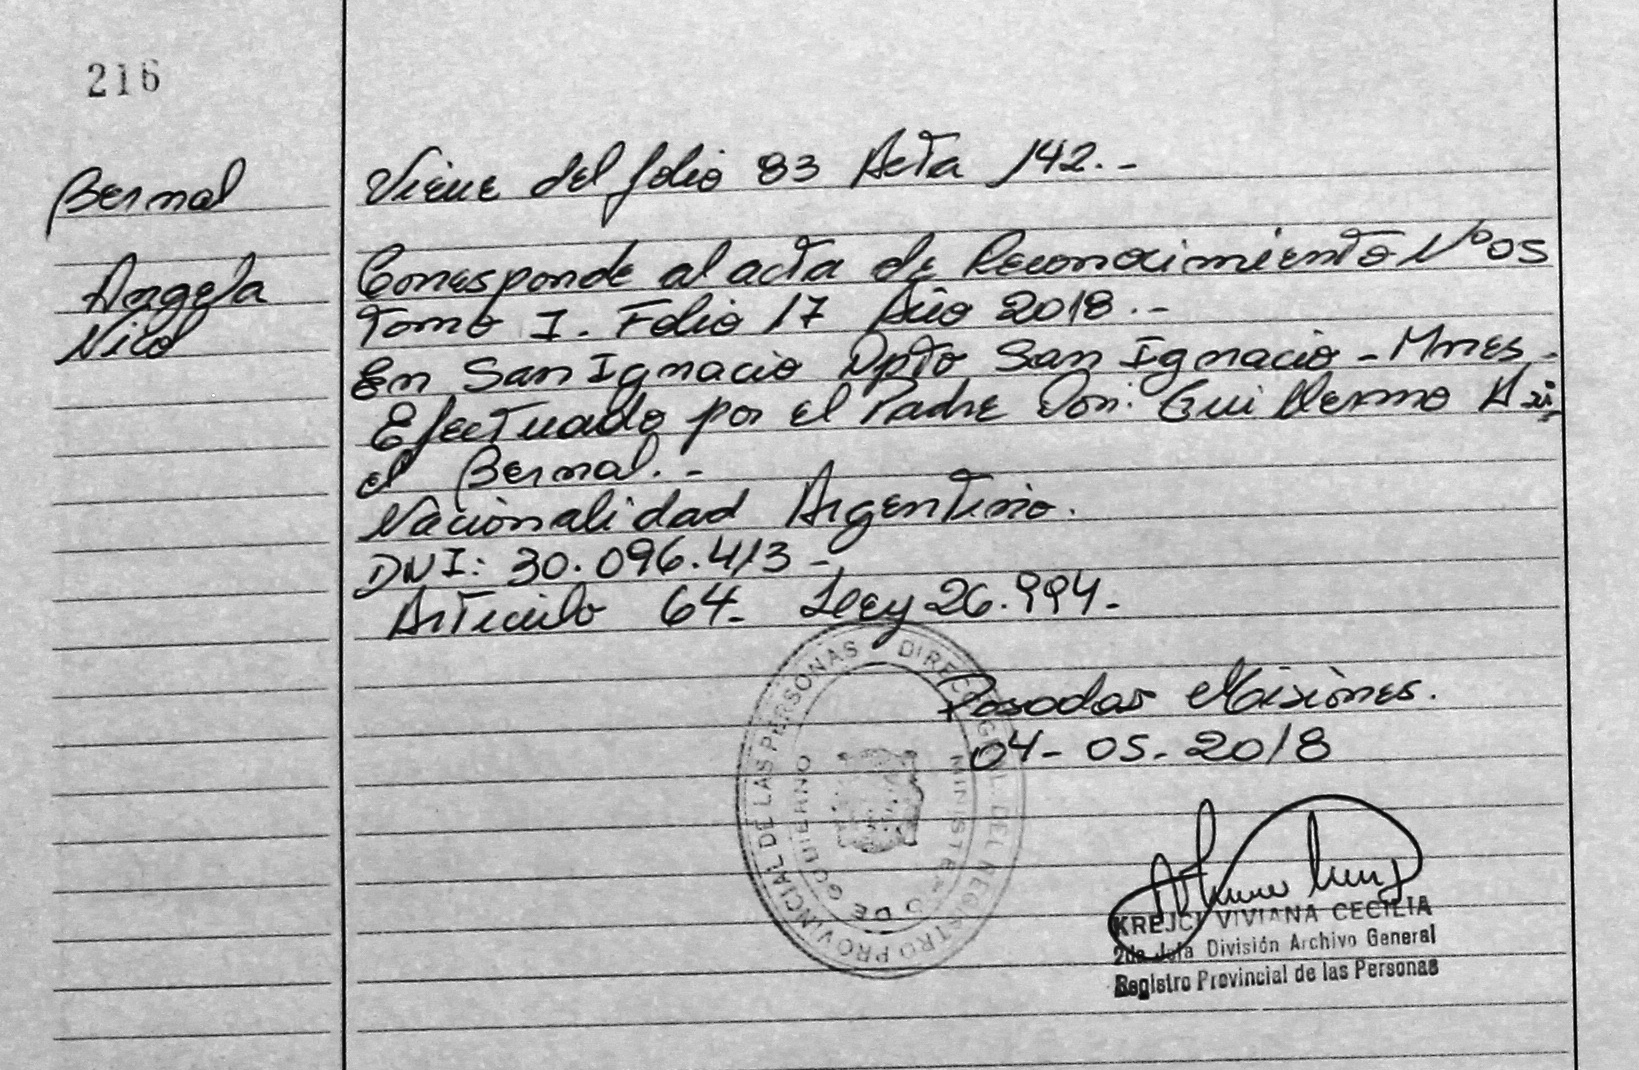 216
Bernal
Angela
Nicol
Viene del folio 83 Acta 142.-
Corresponde al acta de Reconocimiento Nº 05
Tomo I. Folio 17 Año 2018.-
En San Ignacio Dpto San Ignacio - Mnes -
Efectuado por el Padre Don: Guillermo
el Bernal.-
Nacionalidad Argentino.
DNI: 30.096.413-
Articulo 64- Ley 26.994-
Posadas Misiones.
04-05-2018
DIREC. GRAL. DEL REGISTRO PROVINCIAL DE LAS PERSONAS
MINISTERIO DE GOBIERNO
KREJCI VIVIANA CECILIA
2da Jefa División Archivo General
Registro Provincial de las Personas